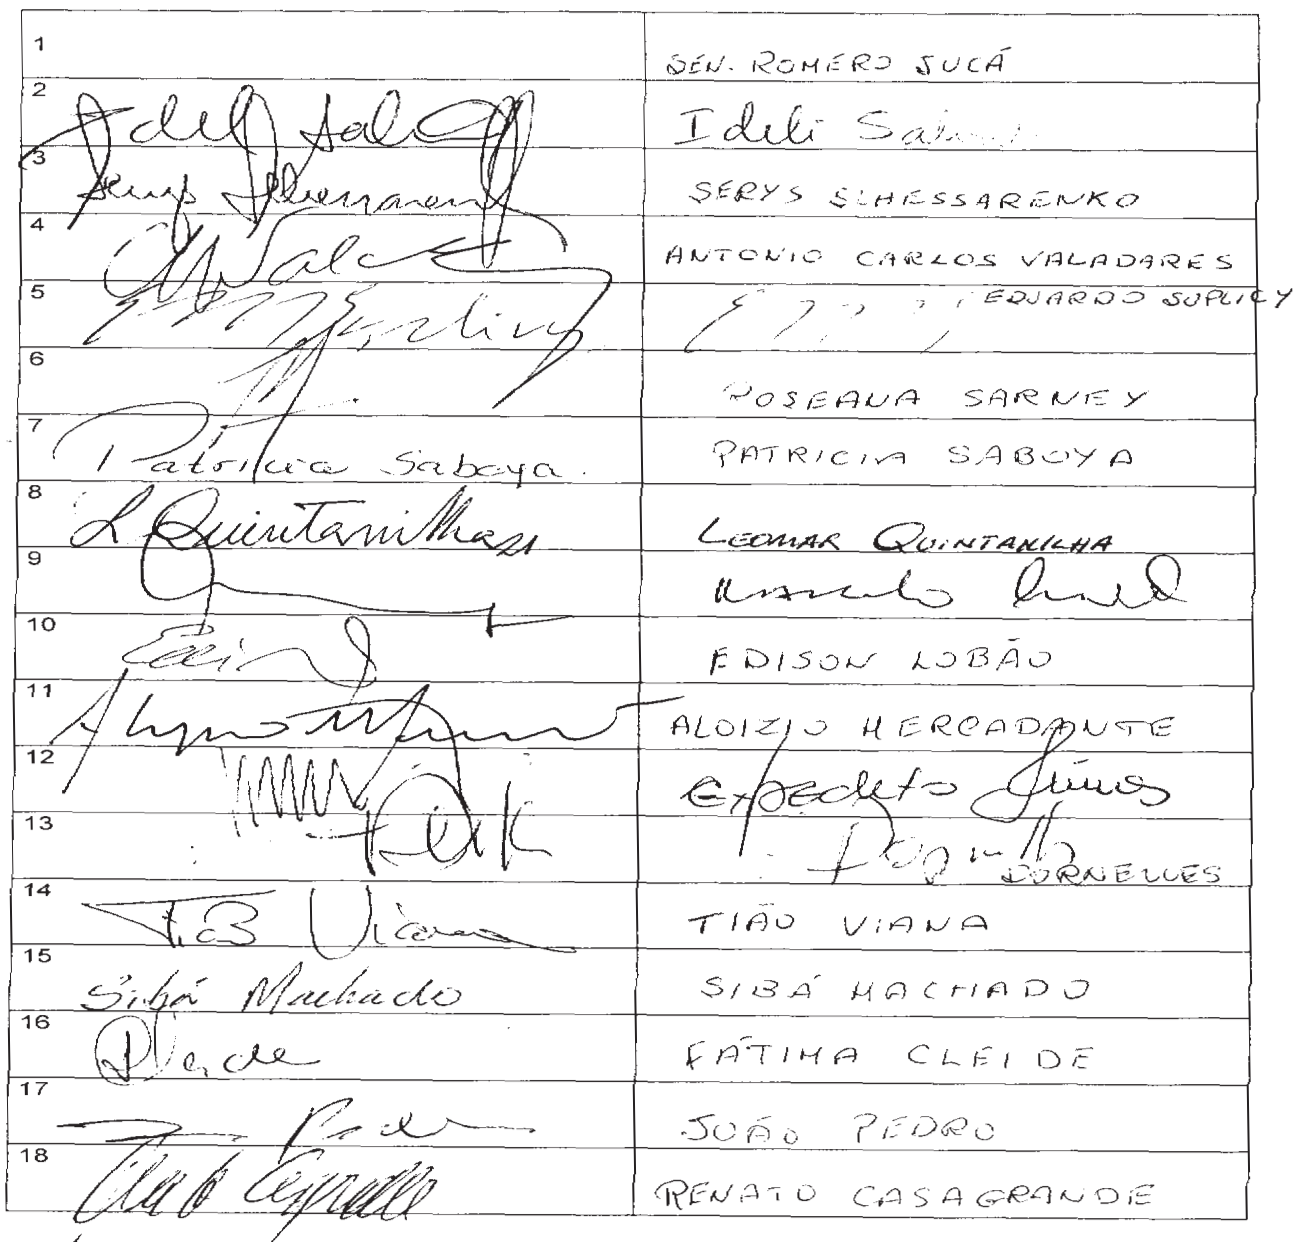 1 SEN. ROMERO JUCÁ
2 Ideli Salv Ideli Salv
3 Serys Slhessarenko SERYS SLHESSARENKO
4 Valadares ANTONIO CARLOS VALADARES
5 Suplicy EDUARDO SUPLICY
6 ROSEANA SARNEY
7 Patricia Saboya PATRICIA SABOYA
8 L Quintanilha LEOMAR QUINTANILHA
9
10 EDISON LOBÃO
11 ALOIZIO MERCADANTE
12 Expedito Júnior
13 DORNELLES
14 Tião Viana TIÃO VIANA
15 Sibá Machado SIBÁ MACHADO
16 FÁTIMA CLEIDE
17 JOÃO PEDRO
18 RENATO CASAGRANDE